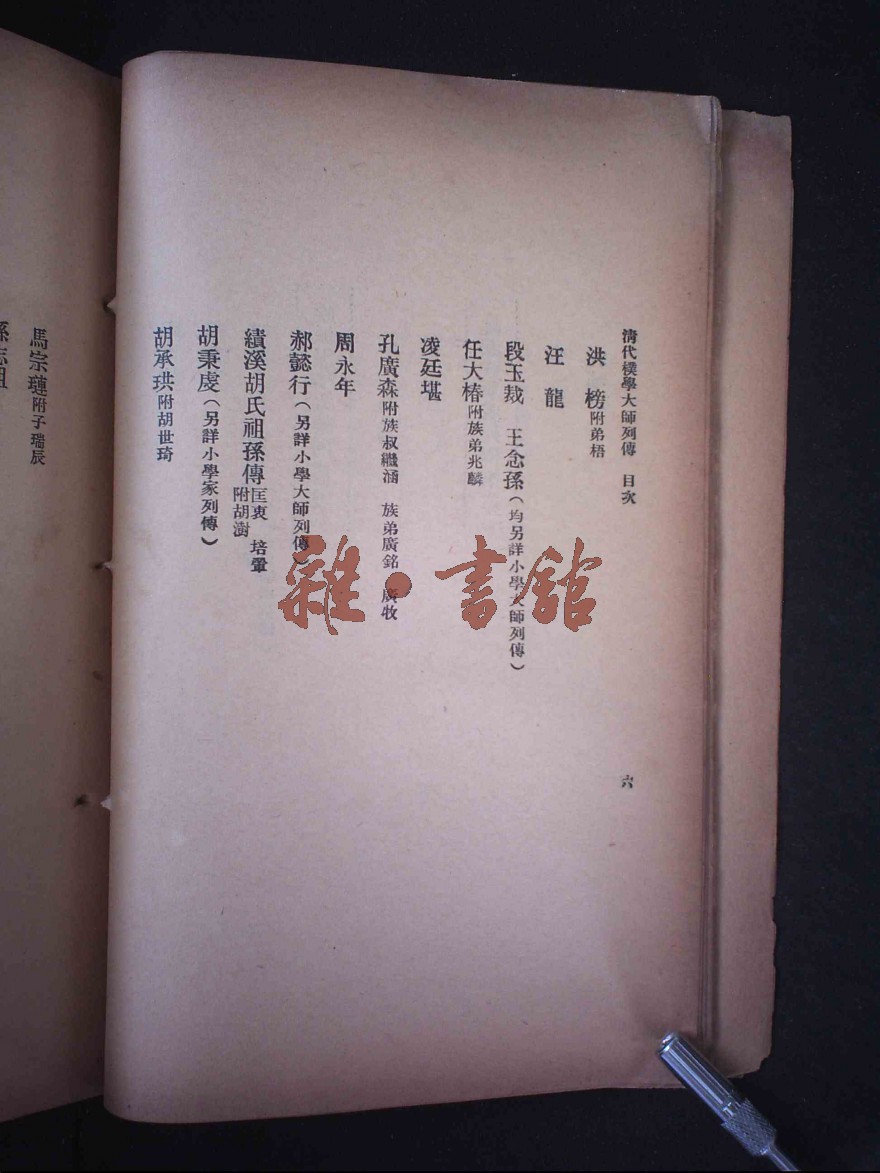 清代樸學大師列傳　目次
六
洪　榜附弟梧
汪　龍
段玉裁　王念孫（均另詳小學大師列傳）
任大椿附族弟兆麟
凌廷堪
孔廣森附族叔繼涵　族弟廣銘　廣牧
周永年
郝懿行（另詳小學大師列傳）
績溪胡氏祖孫傳匡衷　培翬
附胡澍
胡秉虔（另詳小學家列傳）
胡承珙附胡世琦
馬宗璉附子瑞辰
孫志祖
雜·書館